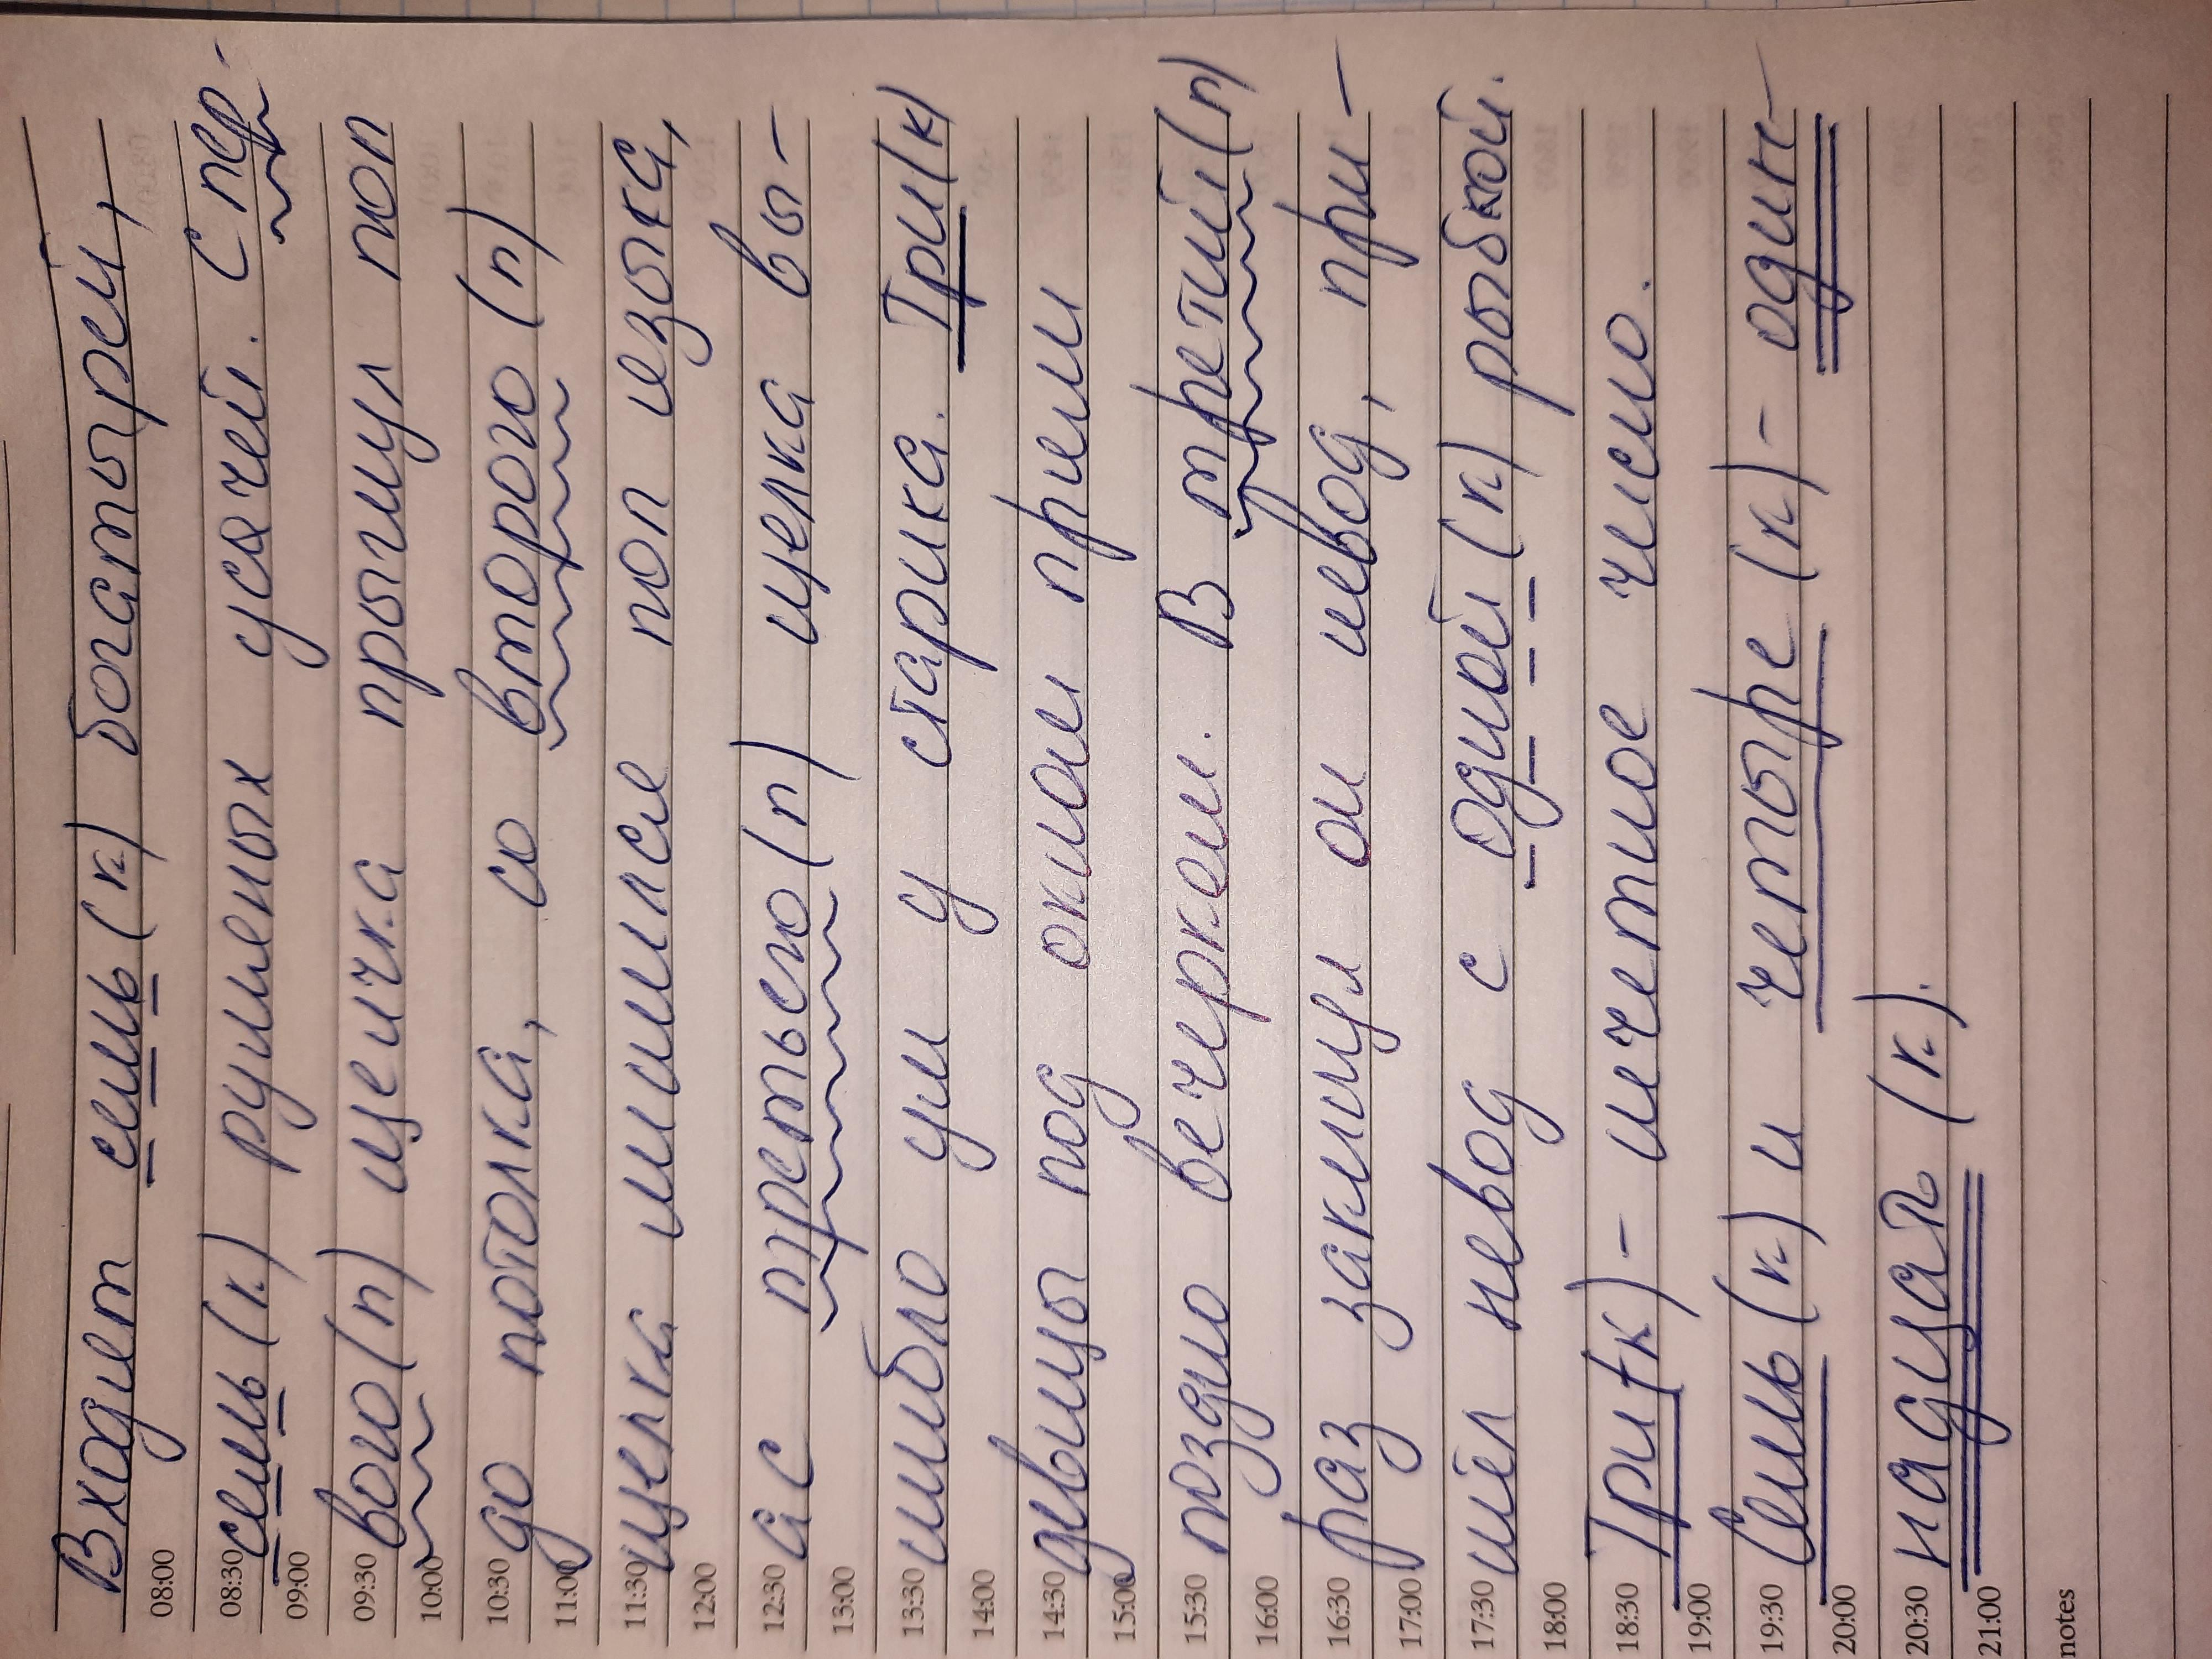 Входят семь (к) богатырей,
08:00
08:30 семь (к) румяных усачей. С пер-
09:00
09:30 вого (п) щелчка прыгнул поп
10:00
10:30 до потолка, со второго (п)
11:00
11:30 щелка лишился поп языка,
12:00
12:30 а с третьего (п) щелка вы-
13:00
13:30 шибло ум у старика. Три (к)
14:00
14:30 девицы под окном пряли
15:00
15:30 поздно вечерком. В третий (п)
16:00
16:30 раз закинул он невод, при-
17:00
17:30 шёл невод с одной (к) рыбкой.
18:00
18:30 Три (к) - нечетное число.
19:00
19:30 Семь (к) и четыре (к) - один-
20:00
20:30 надцать (к).
21:00
notes